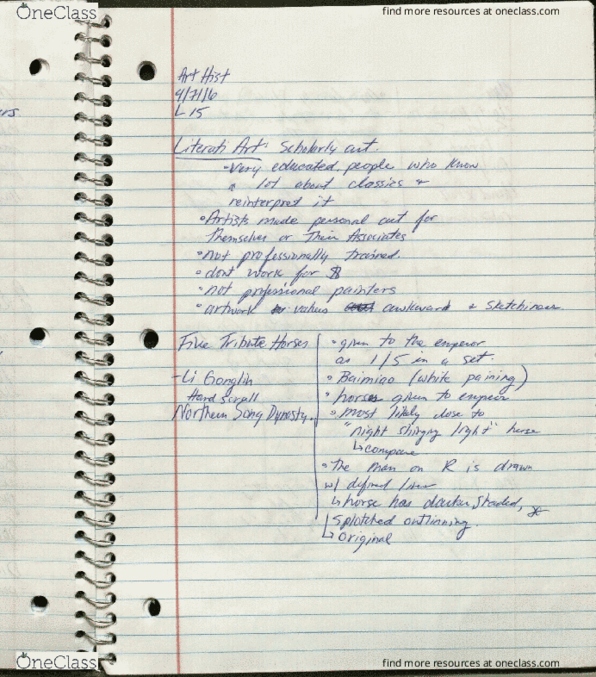 OneClass
find more resources at oneclass.com
Art Hist
4/7/16
L 15
Literati Art: Scholarly art.
• Very educated people who know
a lot about classics +
reinterpret it
• Artists made personal art for
themselves or Their Associates
• not professionally trained
• dont work for $
• not professional painters
• artwork values awkward + sketchiness
Five Tribute Horses
- Li Gonglin
Hand scroll
Northern Song Dynasty.
• given to the emperor
as 1/5 in a set.
• Baimiao (white paining)
• horses given to emperor
• most likely close to
"night shinging light" horse
↳ compare
• The man on R is drawn
w/ defined line
↳ horse has darker shaded,
splotched outlinning.
↳ original
OneClass
find more resources at oneclass.com